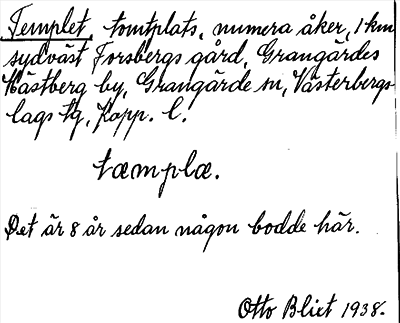 Templet tomtplats, numera åker, 1 km
sydväst Forsbergs gård, Grangärdes
Hästberg by, Grangärde sn, Västerbergs-
lags tg, Kopp. l.
tæmplæ.
Det är 8 år sedan någon bodde här.
Otto Blixt 1938.